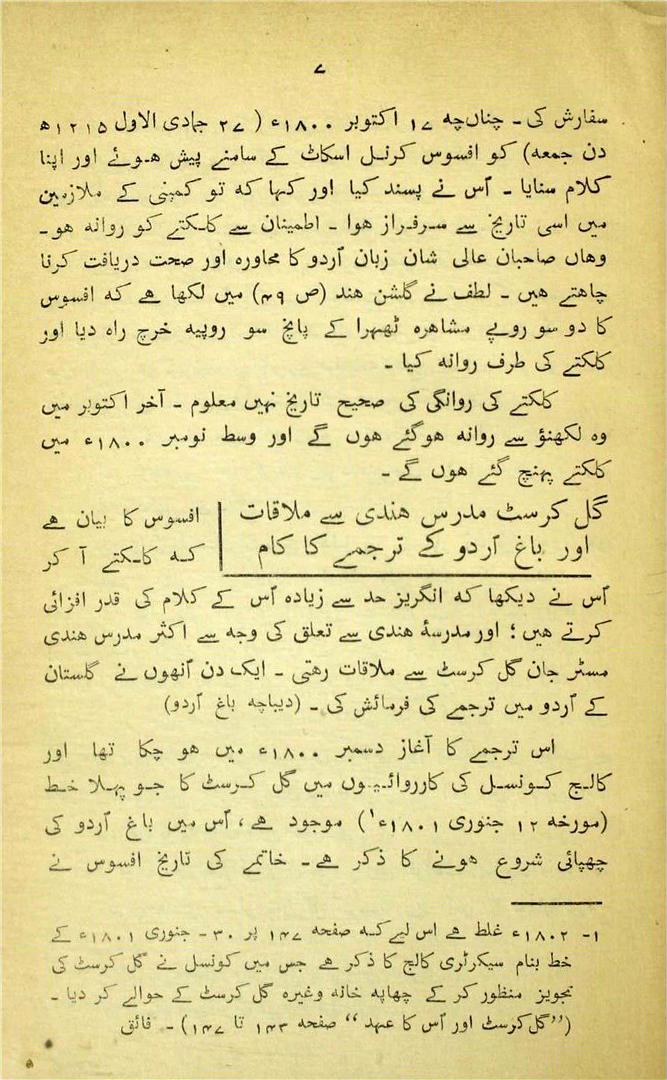 ۷
سفارش کی ۔ چناں‌چہ ۱۷ اکتوبر ۱۸۰۰ء ( ۲۷ جمادی الاول ۱۲۱۵ھ
دن جمعہ) کو افسوس کرنل اسکاٹ کے سامنے پیش ہوئے اور اپنا
کلام سنایا ۔ اُس نے پسند کیا اور کہا کہ تو کمپنی کے ملازمین
میں اسی تاریخ سے سرفراز ہوا ۔ اطمینان سے کلکتے کو روانہ ہو ۔
وہاں صاحبان عالی شان زبان اُردو کا محاورہ اور صحت دریافت کرنا
چاہتے ہیں ۔ لطف نے گلشن ہند (ص ۴۹) میں لکھا ہے کہ افسوس
کا دو سو روپے مشاہرہ ٹھہرا کے پانچ سو روپیہ خرچ راہ دیا اور
کلکتے کی طرف روانہ کیا ۔
کلکتے کی روانگی کی صحیح تاریخ نہیں معلوم ۔ آخر اکتوبر میں
وہ لکھنؤ سے روانہ ہوگئے ہوں گے اور وسط نومبر ۱۸۰۰ء میں
کلکتے پہنچ گئے ہوں گے ۔
گل کرسٹ مدرس ہندی سے ملاقات
اور باغ اُردو کے ترجمے کا کام
افسوس کا بیان ہے
کہ کلکتے آ کر
اُس نے دیکھا کہ انگریز حد سے زیادہ اُس کے کلام کی قدر افزائی
کرتے ہیں ؛ اور مدرسۂ ہندی سے تعلق کی وجہ سے اکثر مدرس ہندی
مسٹر جان گل کرسٹ سے ملاقات رہتی ۔ ایک دن اُنھوں نے گلستان
کے اُردو میں ترجمے کی فرمائش کی ۔ (دیباچہ باغ اُردو)
اس ترجمے کا آغاز دسمبر ۱۸۰۰ء میں ہو چکا تھا اور
کالج کونسل کی کارروائیوں میں گل کرسٹ کا جو پہلا خط
(مورخہ ۱۲ جنوری ۱۸۰۱ء¹) موجود ہے ، اُس میں باغ اُردو کی
چھپائی شروع ہونے کا ذکر ہے ۔ خاتمے کی تاریخ افسوس نے
۱- ۱۸۰۲ء غلط ہے اس لیے کہ صفحہ ۱۴۷ پر ۳۰ ۔ جنوری ۱۸۰۱ء کے
خط بنام سیکرٹری کالج کا ذکر ہے جس میں کونسل نے گل کرسٹ کی
تجویز منظور کر کے چھاپہ خانہ وغیرہ گل کرسٹ کے حوالے کر دیا ۔
(”گل کرسٹ اور اُس کا عہد“ صفحہ ۱۴۳ تا ۱۴۷) ۔ فائق